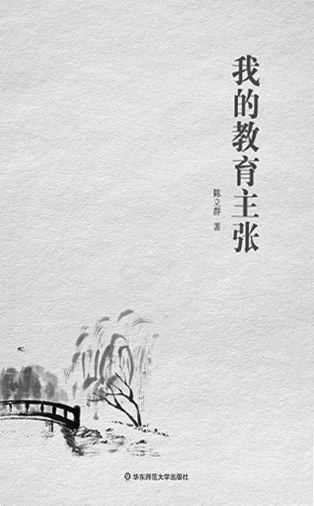 我的教育主张
陈立群 著
华东师范大学出版社